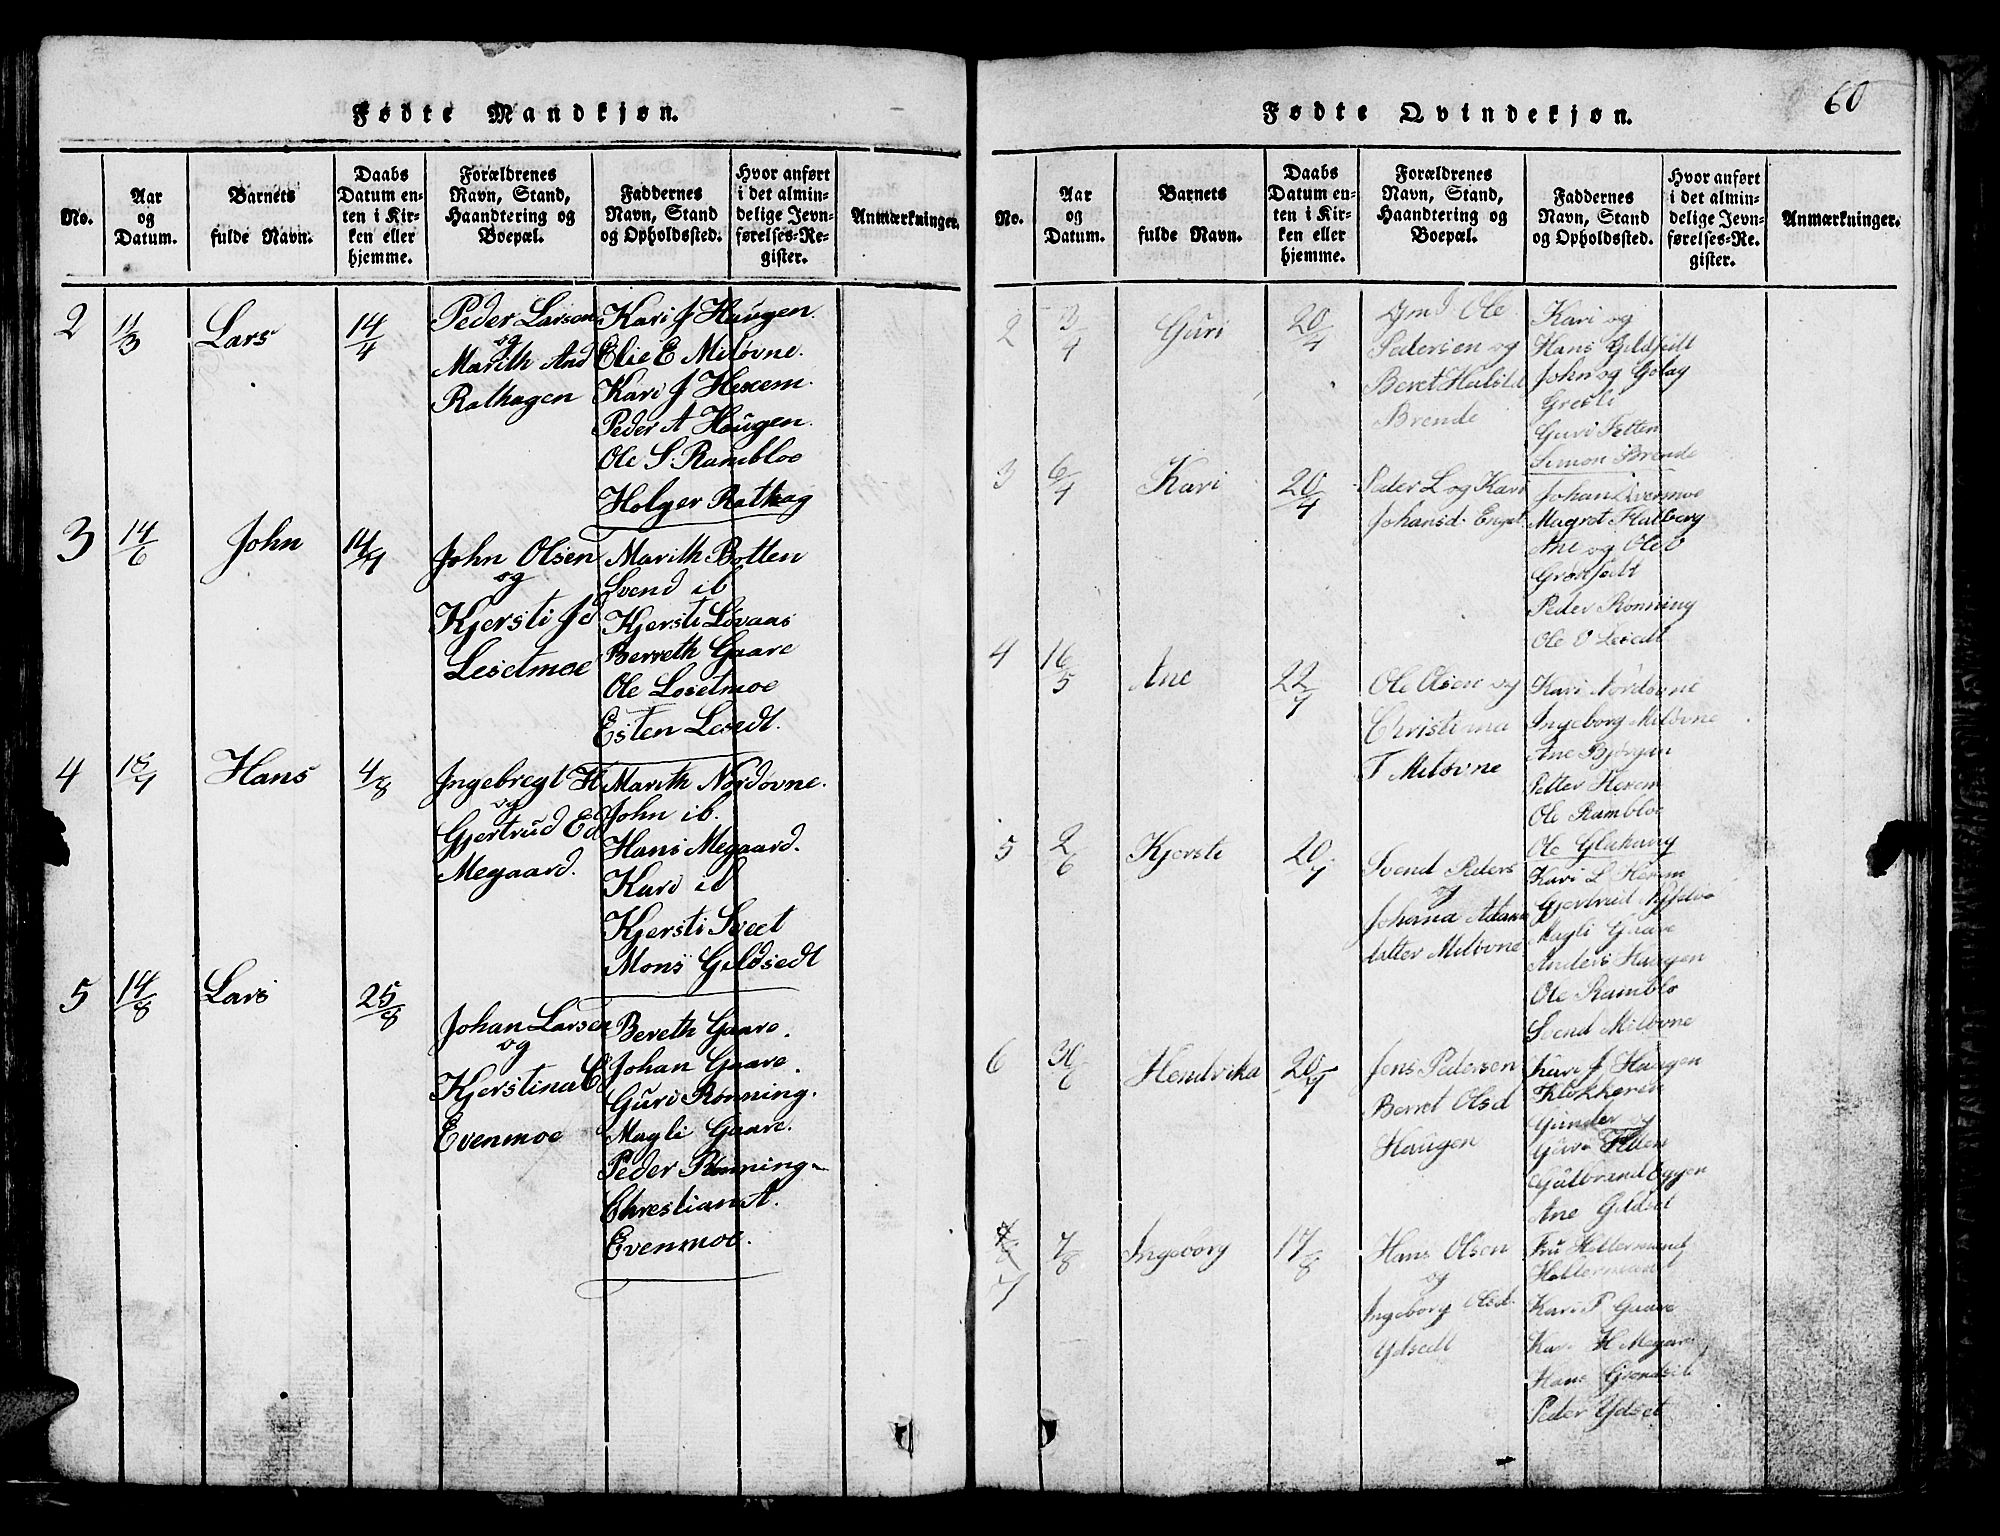 Fødte Mandkjøn.
No.
Aar
og
Datum.
Barnets
fulde Navn.
Daabs
Datum en-
ten i Kir-
ken eller
hjemme.
Forældrenes
Navn, Stand,
Haandtering og
Boepæl.
Faddernes
Navn, Stand
og Opholdssted.
Hvor anført
i det almin-
delige Jevn-
førelses-Re-
gister.
Anmærkninger.
2
11/3
Lars
14/4
Peder Larsen
og
Marith And
Rathagen
Kari J Haugen.
Elie E Miløvne.
Kari J Hexem.
Peder A Haugen.
Ole S. Rambloe
Holger Rathag
3
14/6
John
14/7
John Olsen
og
Kjersti Jd
Lesetmoe
Marith Botten
Svend ib
Kjersti Løvaas
Berreth Gaare
Ole Losetmoe
Esten Lesedt.
4
15/7
Hans
4/8
Ingebregt H
og
Gjertrud Ed
Megaard.
Marith Nordovne.
John ib.
Hans Megaard.
Kari ib
Kjersti Sveet
Mons Gildsedt
5
14/8
Lars
25/8
Johan Larsen
og
Kjerstina
Evenmoe
Bereth Gaare.
Johan Gaare.
Guri Rønning.
Magli Gaare.
Peder Rønning
Christian A.
Evenmoe.
60
Fødte Qvindekjøn.
No.
Aar
og
Datum.
Barnets
fulde Navn.
Daabs
Datum en-
ten i Kir-
ken eller
hjemme.
Forældrenes
Navn, Stand,
Haandtering og
Boepæl.
Faddernes
Navn, Stand
og Opholdssted.
Hvor anført
i det almin-
delige Jevn-
førelses-Re-
gister.
Anmærkninger.
2
3/4
Guri
20/4
Ole
Pedersen og
Beret
Brende
Kari og
Hans Gildsedt
John og Golag
Gresli
Guri Tetten
Simon Brende
3
6/4
Kari
20/4
Peder L og Kari
Johansd. Enget
Johan Evenmoe
Magret Flatberg
Ane og Ole O
Grøntsedt
Peder Rønning
Ole O Lesedt
4
16/5
Ane
22/7
Ole Olsen og
Christina
T Miløvne
Kari Nordovne
Ingeborg Miløvne
Ane Bjørgen
Petter Hexem
Ole Rambloe
Ole
5
2/6
Kjersti
20/7
Svend Peders
og
Johanna
Miløvne
Kari L Hexem
Gjertrud
Magli Gaare
Anders Haugen
Ole Ramblo
Svend Miløvne
6
30/6
Hendrika
20/7
Jens Pedersen
Berret Olsd
Haugen
Kari J Haugen
Klokkeren
Gunder og
Guri
Gulbrand Eggen
Ane Gildset
7
7/8
Ingeborg
17/8
Hans Olsen
og
Ingeborg Olsd.
Ydsedt
Fru
Kari P Gaare
Kari H Megaar
Hans
Peder Ydset